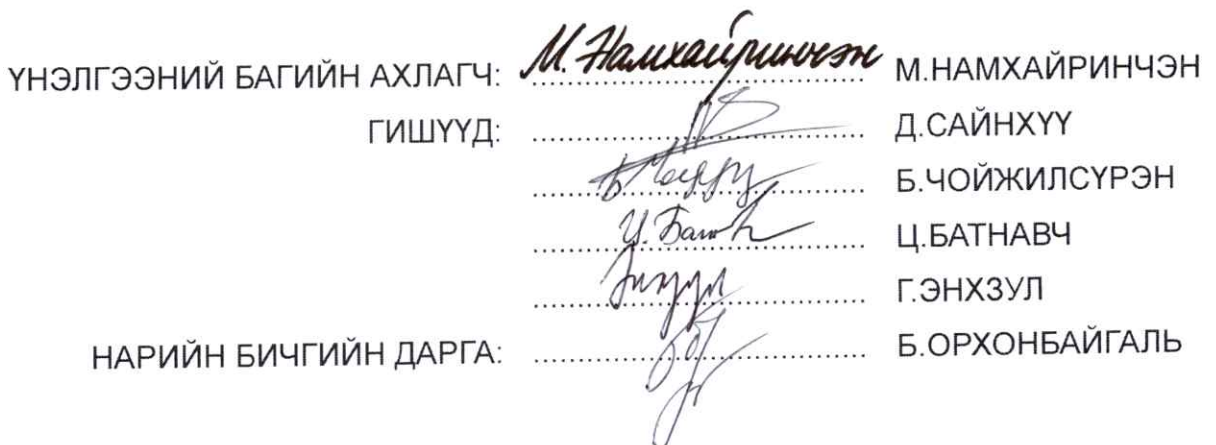 ҮНЭЛГЭЭНИЙ БАГИЙН АХЛАГЧ: М. Намхайринчэн М.НАМХАЙРИНЧЭН
ГИШҮҮД: Д.САЙНХҮҮ
Б.ЧОЙЖИЛСҮРЭН
Ц. Батн Ц.БАТНАВЧ
Г.ЭНХЗУЛ
НАРИЙН БИЧГИЙН ДАРГА: Б.ОРХОНБАЙГАЛЬ